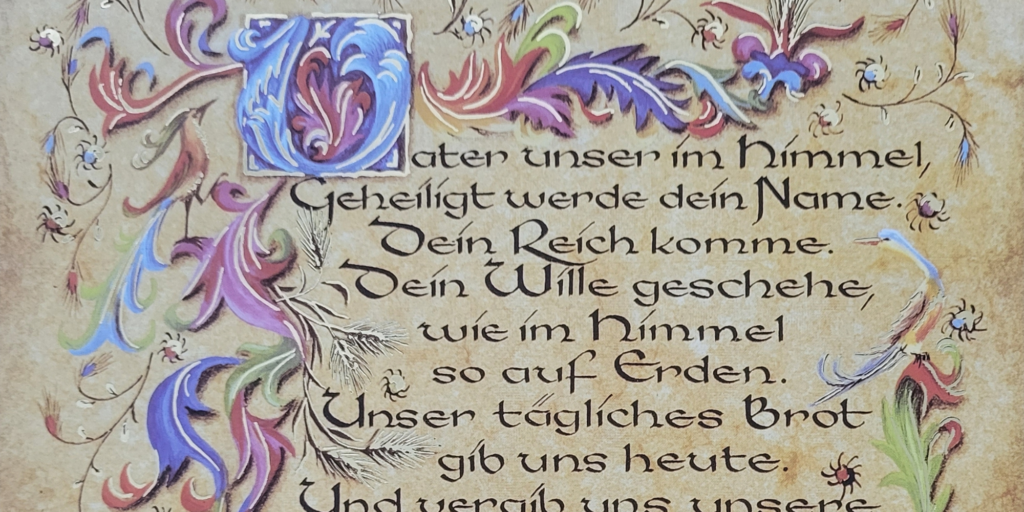 Vater unser im Himmel,
Geheiligt werde dein Name.
Dein Reich komme.
Dein Wille geschehe,
wie im Himmel
so auf Erden.
Unser tägliches Brot
gib uns heute.
Und vergib uns unsere